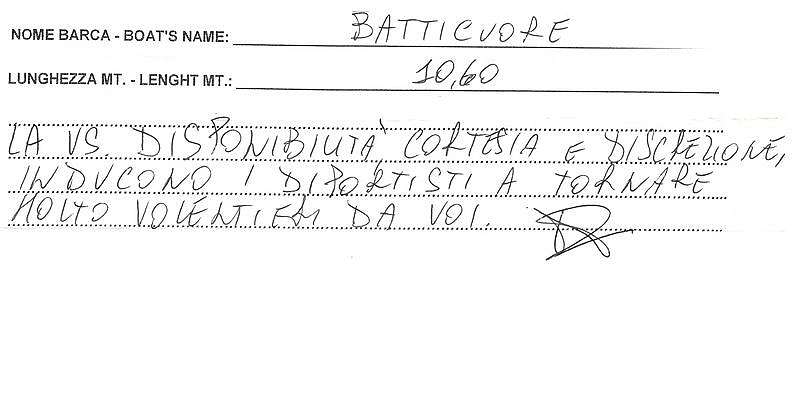 NOME BARCA - BOAT'S NAME: BATTICUORE
LUNGHEZZA MT. - LENGHT MT.: 10,60
LA VS. DISPONIBILITÀ, CORTESIA E DISCREZIONE,
INDUCONO I DIPORTISTI A TORNARE
MOLTO VOLENTIERI DA VOI.